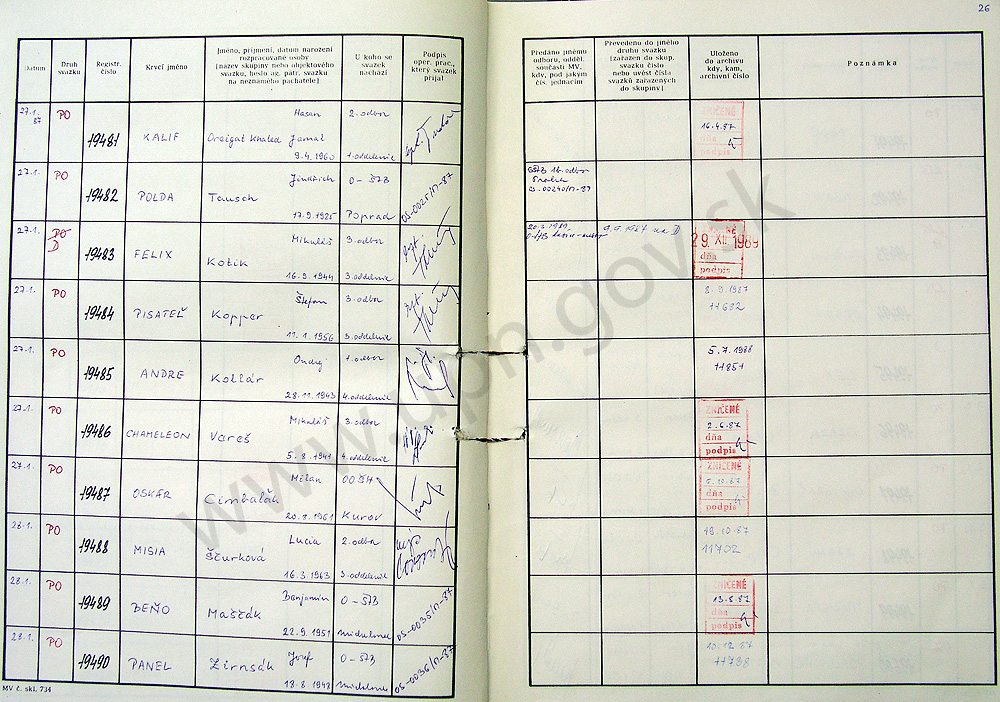 26
Datum
Druh svazku
Registr. číslo
Krycí jméno
Jméno, příjmení, datum narození rozpracované osoby
[název skupiny nebo objektového svazku, heslo ag. pátr. svazku na neznámého pachatele]
U koho se svazek nachází
Podpis oper. prac., který svazek přijal
Předáno jinému odboru, odděl. součásti MV, kdy, pod jakým čís. jednacím
Převedeno do jiného druhu svazku [zařazen do skup. svazku číslo nebo uvést čísla svazků zařazených do skupiny]
Uloženo do archivu kdy, kam, archivní číslo
Poznámka
27.1. 87 PO 19481 KALIF Hasan 2. odbor
Oreigat Khaled Jamal
9.4.1960 1. oddelenie
ZNIČENÉ
16.4.87
dňa
podpis
27.1. PO 19482 POLDA Jindřich O-ŠTB
Tausch
17.9.1925 Poprad OS-0025/N-87
16. odbor
27.1. PO D 19483 FELIX Mikuláš 3. odbor
Kotik
16.9.1944 3. oddelenie
20.3.1989
29. XII. 1989
dňa
podpis
27.1. PO 19484 PISATEĽ Štefan 3. odbor
Kopper
11.1.1956 3. oddelenie
8.9.1987
11682
27.1. PO 19485 ANDRE Ondrej 1. odbor
Kollár
28.11.1943 4. oddelenie
5.7.1988
11851
27.1. PO 19486 CHAMELEON Mikuláš 3. odbor
Vareš
5.8.1941 4. oddelenie
ZNIČENÉ
2.6.87
dňa
podpis
27.1. PO 19487 OSKÁR Milan OOSH
Cimbalák
20.8.1961 Kurov
ZNIČENÉ
5.10.87
dňa
podpis
28.1. PO 19488 MISIA Lucia 2. odbor
Ščurková
16.3.1963 3. oddelenie
19.10.87
11702
28.1. PO 19489 BEŇO Benjamin O-ŠTB
Maščák
22.9.1951 OS-0035/N-87
ZNIČENÉ
13.8.87
dňa
podpis
28.1. PO 19490 PANEL Jozef O-ŠTB
Žirnsák
18.8.1948 OS-0036/N-87
10.12.87
11738
MV č. skl. 734
www.upn.gov.sk